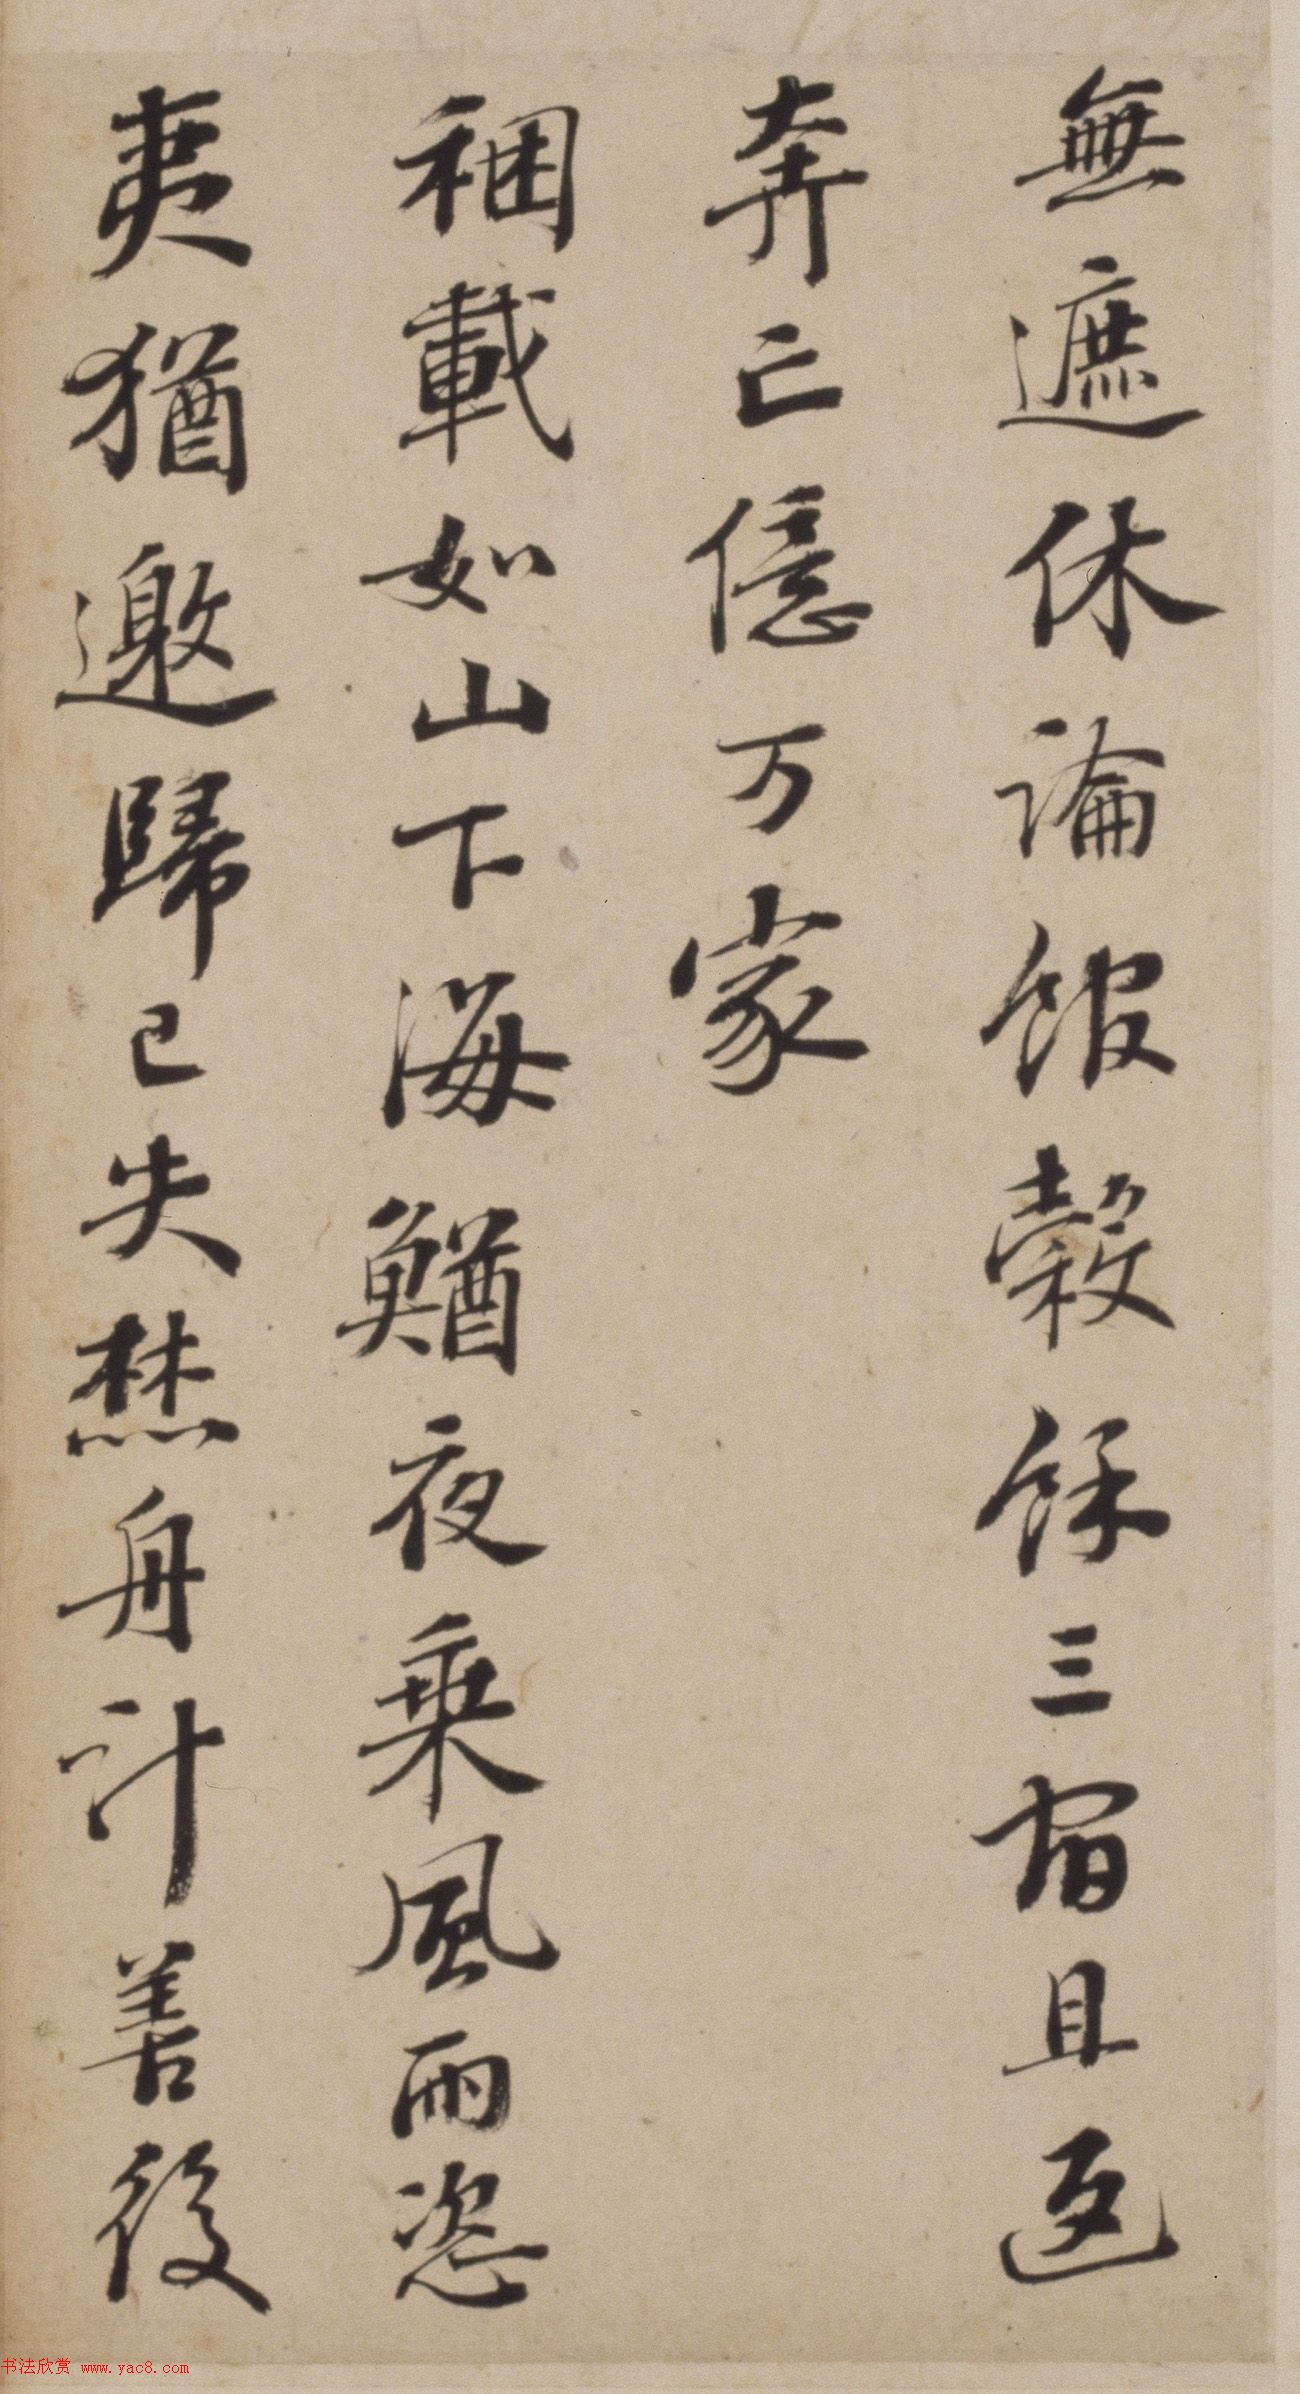 無遮休論館穀餘三宿且返
奔亡億万家
稛載如山下海鰌夜乗風雨恣
夷猶邀歸已失焚舟計善後
书法欣赏 www.yac8.com